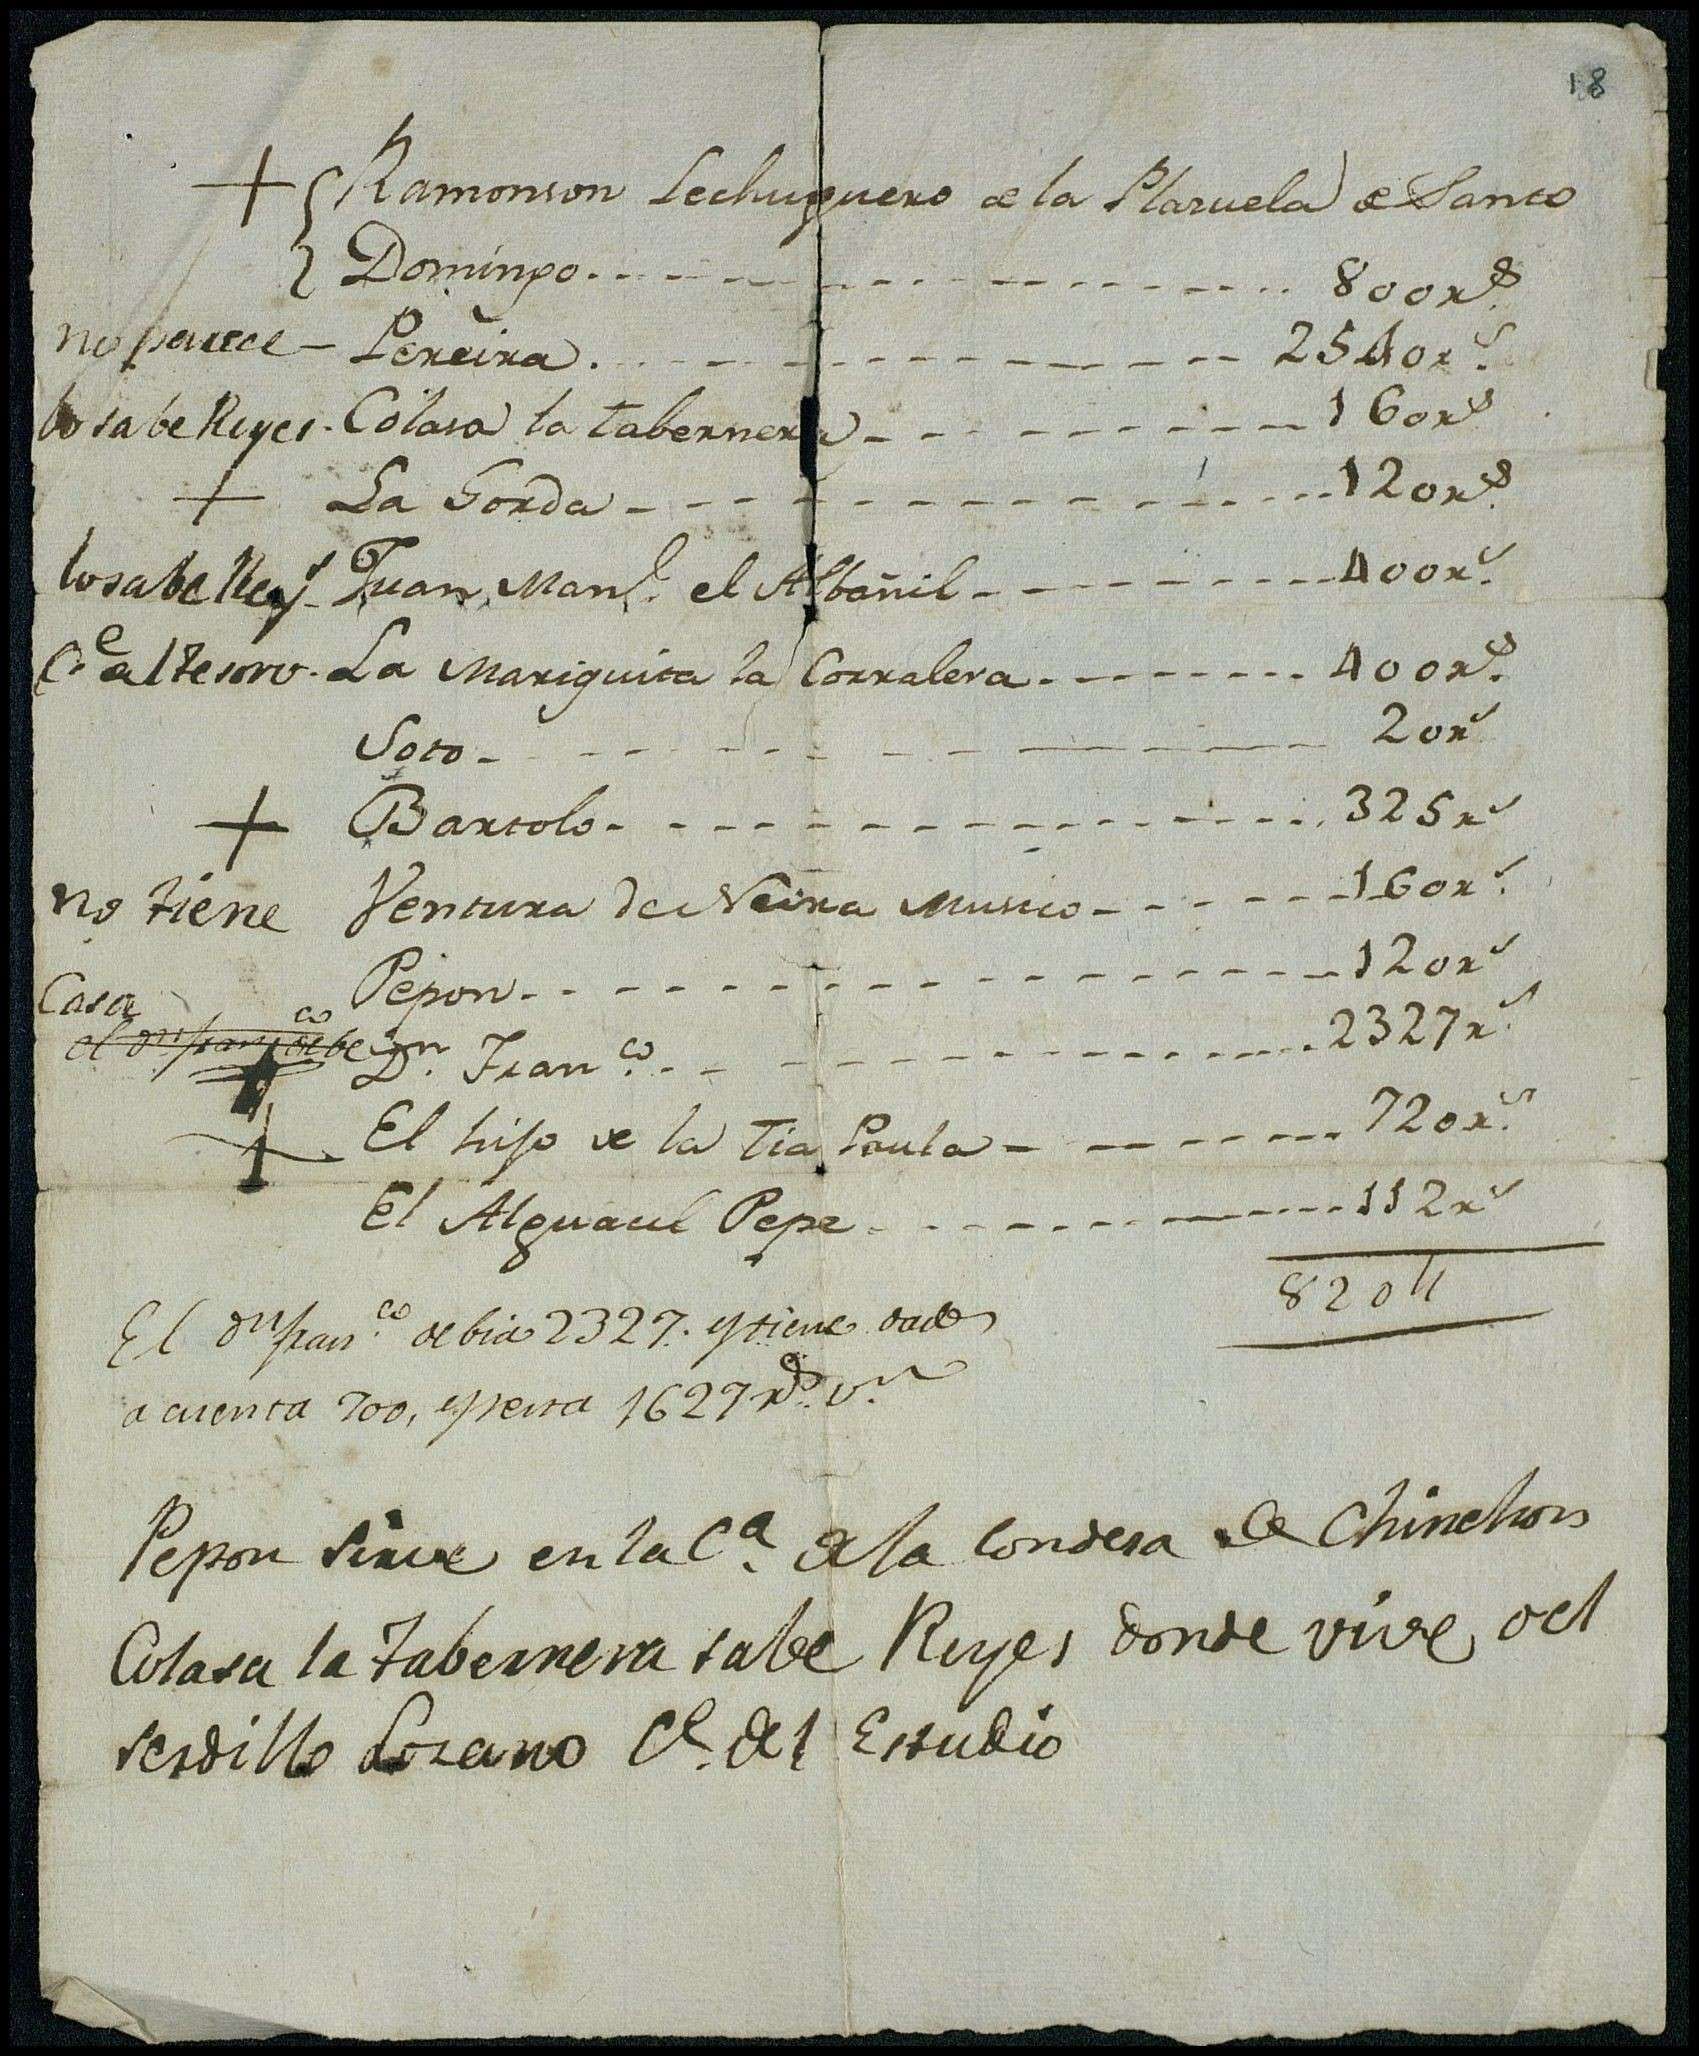 18
+ { Ramonson Lechuguero de la Plazuela de Santo
Domingo. 800 rs.
no parece - Pereira. 2540 rs.
lo sabe Reyes. Colasa la tabernera 160 rs
+ La Gorda 120 rs.
lo sabe Rey.s Juan Manl. el Albañil 400 rs.
C.e al tesoro. La Mariquita la Corralera 400 rs.
Soto 20 rs
+ Bartolo 325 rs
no tiene Ventura de Neira Musico 160 rs.
Casa Pepon. 120 rs
el dn fran.co debe
+ Dn. Fran.co 2327 rs.
+ El hijo de la Tia Paula 720 rs.
El Alguacil Pepe 112 rs
8204
El dn fran.co debia 2327. y tiene dados
a cuenta 700, y resta 1627 rs. vn.
Pepon sirve en la C.a de la Condesa de Chinchon
Colasa la tabernera sabe Reyes donde vive, o el
serdillo Lozano C.e del Estudio